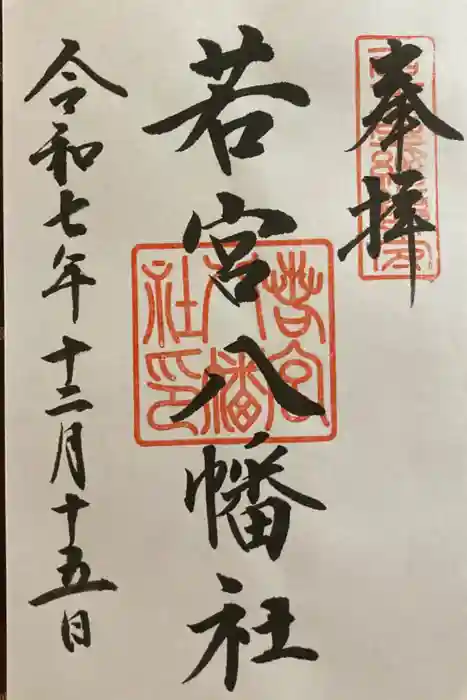 奉拝
若宮八幡社
令和七年十二月十五日
若宮八幡社印